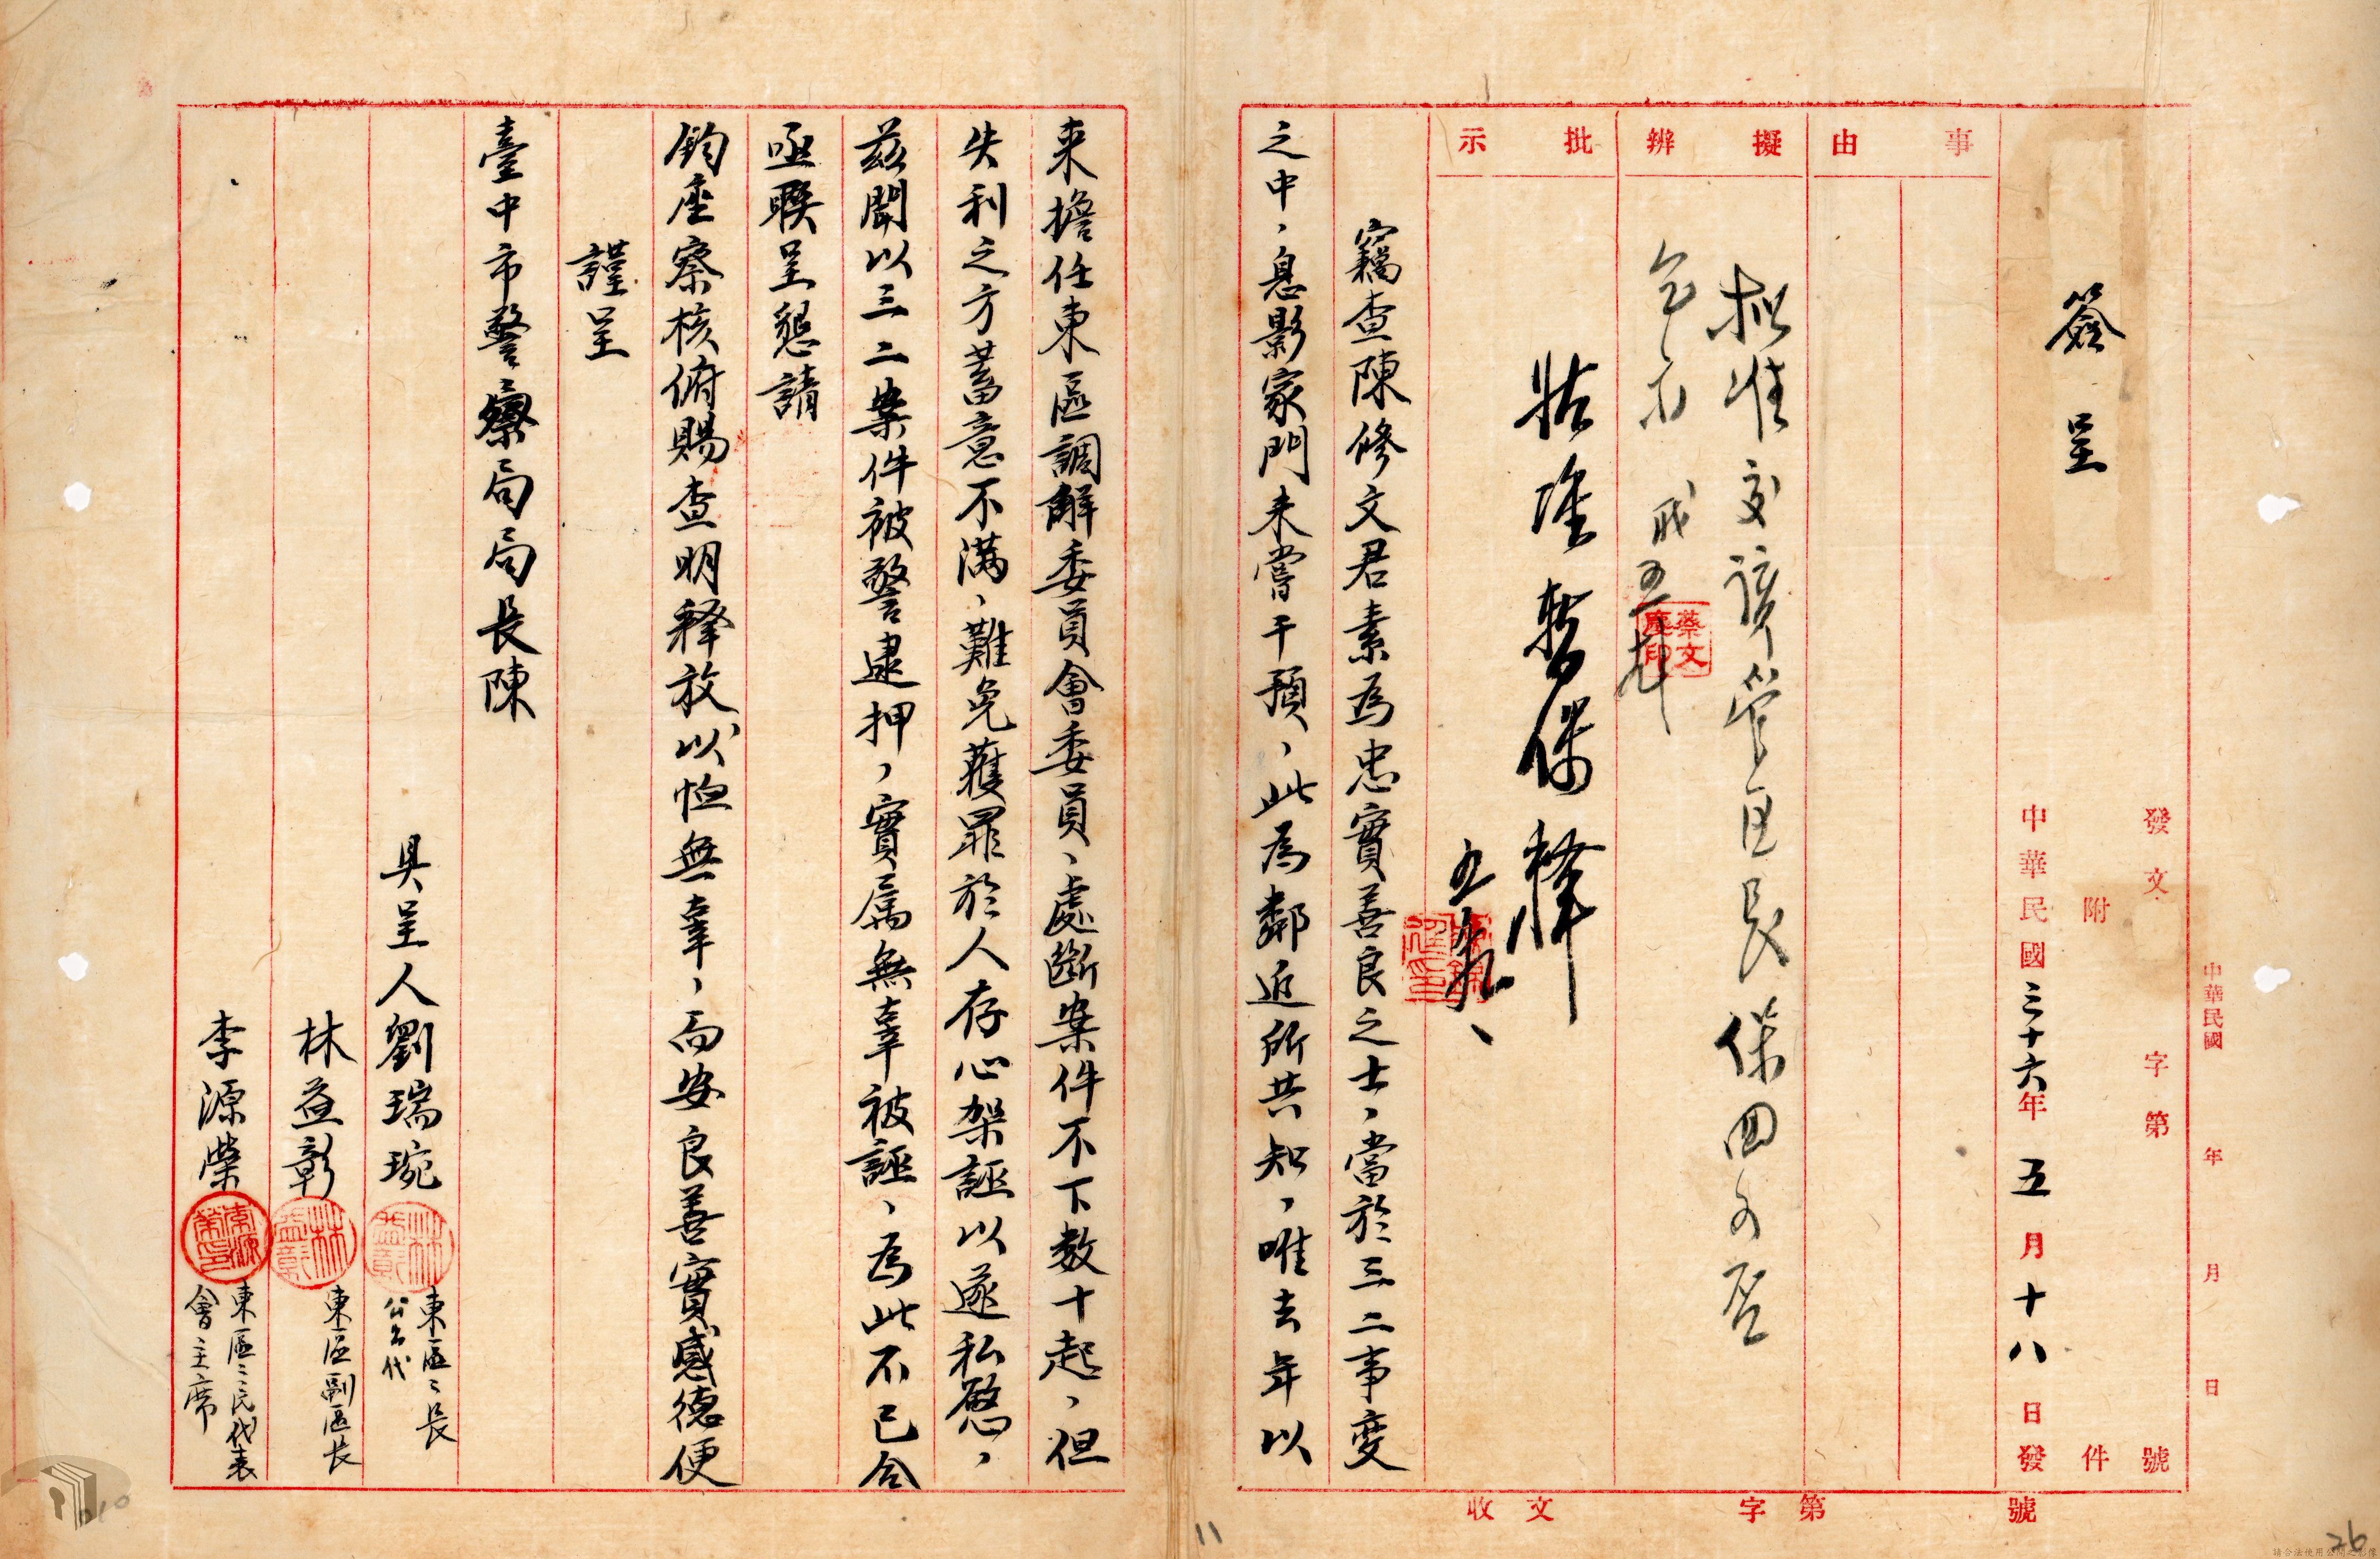 簽呈
發文 字第 號
附 件
中華民國三十六年五月十八日發
中華民國 年 月 日
事由
擬辦
批示
拟准交該管区長保回可否
乞示
職
五、
蔡文
印
姑准暫保釋
五、
竊查陳修文君素為忠實善良之士，當於三二事變
之中，息影家門未嘗干預，此為鄰近所共知，唯去年以
收文 字第 號
来擔任東區調解委員會委員、處斷案件不下数十起，但
失利之方蓄意不滿，難免蘿罪於人存心架誣以遂私慾，
茲聞以三二案件被警逮押，實属無辜被誣，為此不已合
亟聯呈懇請
鈞座察核俯賜查明釋放以恤無辜，而安良善實感德便
謹呈
臺中市警察局局長陳
具呈人劉瑞琬 東區々長
公出代
林益彰 林益彰 東區副區長
林益彰
李源榮 東區々民代表
會主席
11
26
010